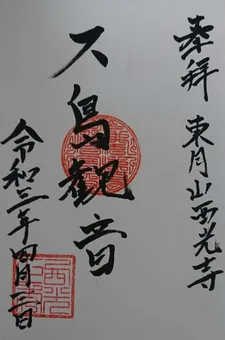 奉拝 東月山西光寺
大鳥観音
令和三年四月三日